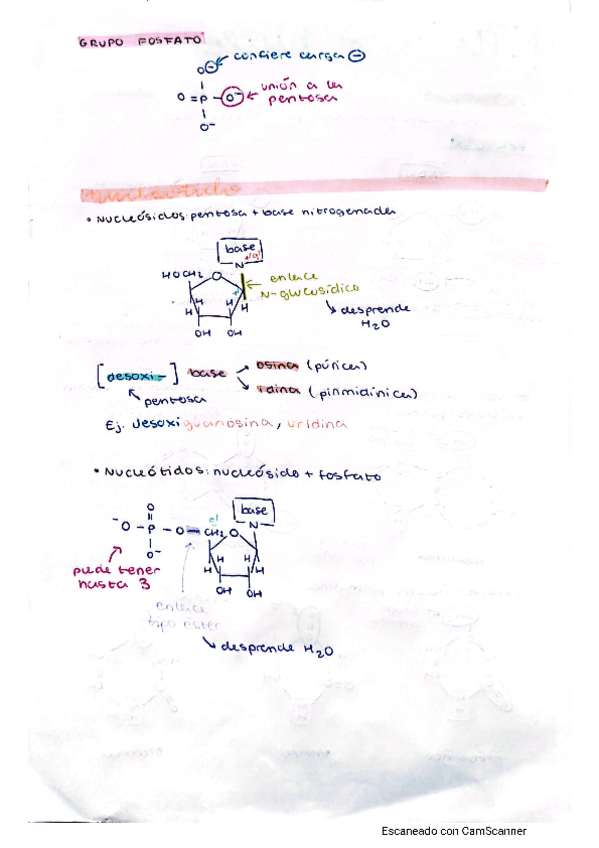 GRUPO FOSFATO
O⊖ ← confiere carga ⊖
O = P - O⁻ ← unión a la pentosa
O⁻
Nucleótido
• Nucleósidos: pentosa + base nitrogenada
base
N
HOCH2 O
← enlace N-glucosídico
H H H H
↘ desprende H2O
OH OH
[desoxi-] base → osina (púrica)
↘ idina (pirimidínica)
↖ pentosa
Ej. desoxiguanosina, uridina
• Nucleótidos: nucleósido + fosfato
O
base
⁻O - P - O - CH2 O N
O⁻
H H H H
puede tener hasta 3
OH OH
enlace tipo éster
↘ desprende H2O
Escaneado con CamScanner